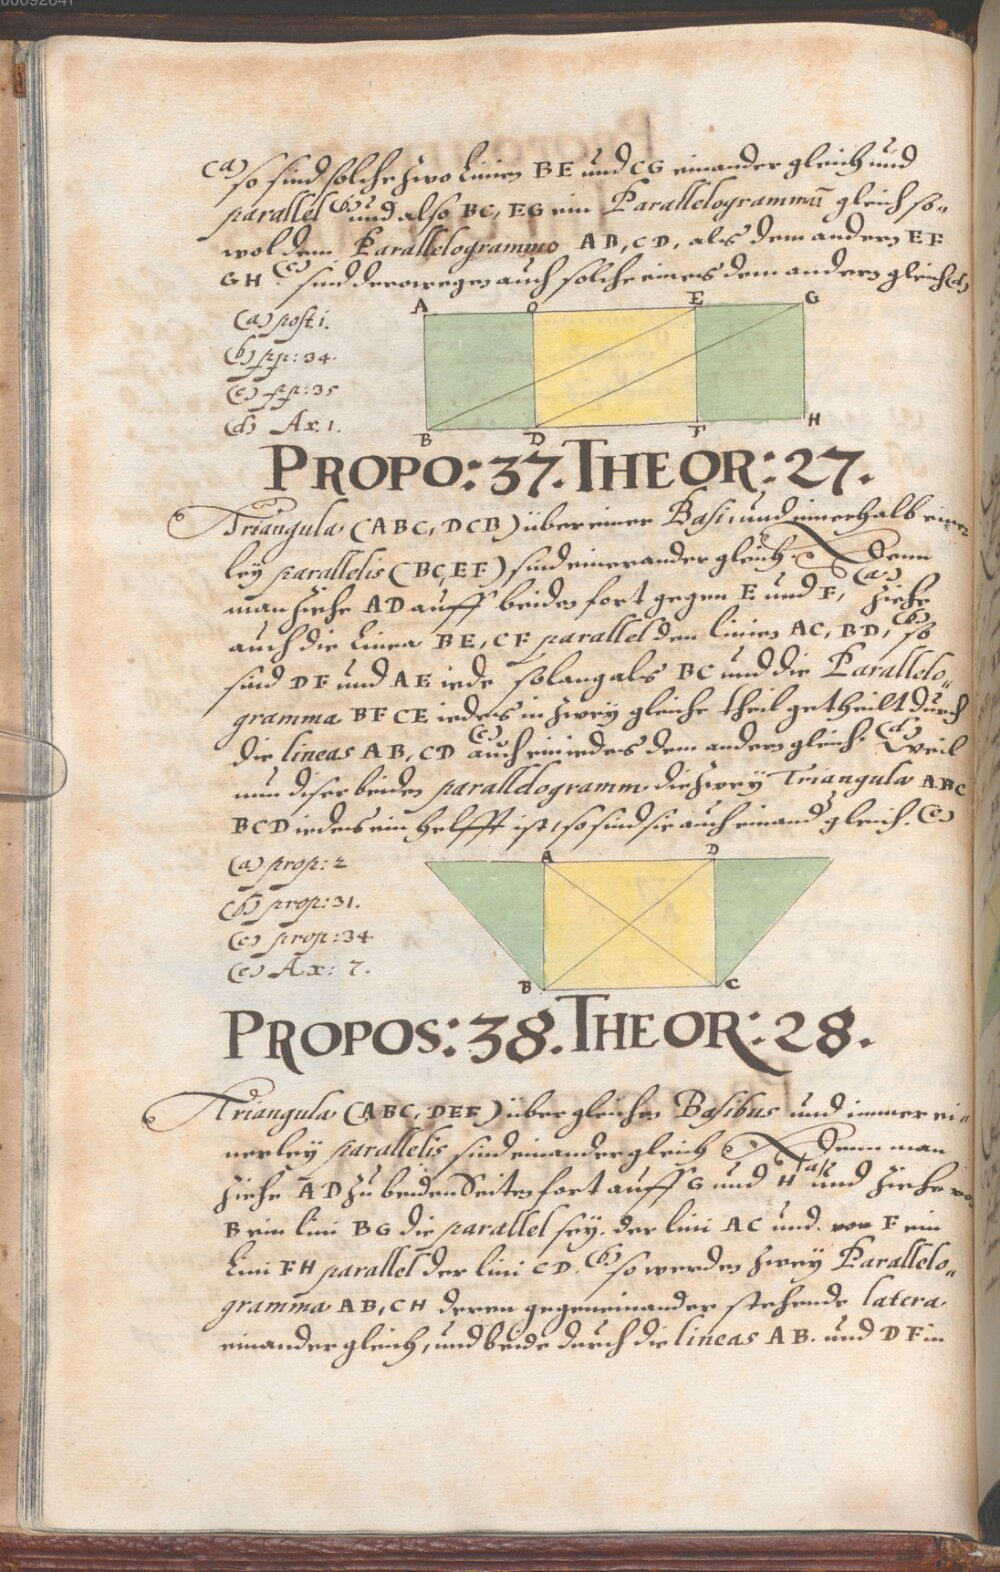 00092641
(a) so sind solche zwo Linien BE und CG einander gleich und
parallel (b) und also BC, EG ein Parallelogrammū gleich so„
wol dem Parallelogrammo AB, CD, als dem andern EF
GH (c) sind derowegen auch solche eines dem andern gleich (d)
(a) post 1.
(b) pp: 34.
(c) pp: 35
(d) Ax. 1.
A E G
B D F H
PROPO: 37. THEOR: 27.
Triangula (ABC, DCB) über einer Basi, und innerhalb einer
ley parallelis (BC, EF) sind einander gleich. Denn
man ziehe AD auff beiden fort gegen E und F, (a) ziehe
auch die Linea BE, CF parallel den linien AC, BD, (b) so
sind DF und AE iede so lang als BC und die Parallelo„
gramma BF CE iedes in zwey gleiche theil getheilt durch
die lineas AB, CD (c) auch ein iedes dem andern gleich. (d) Weil
nun diser beiden paralldogramm die zwey Triangula ABC
BCD iedes ein helfft ist, so sind sie auch einand gleich. (e)
(a) prop: 2
(b) prop: 31.
(c) prop: 34
(e) Ax: 7.
A D
B C
PROPOS: 38. THEOR: 28.
Triangula (ABC, DEF) über gleichen Basibus und immer ei„
nerley parallelis sind einander gleich Denn man
ziehe AD zu beiden Seiten fort auff G und H (a) und ziehe
B ein lini BG die parallel sey. der lini AC und. von F ein
Lini FH parallel der lini CD. (b) so werden zwey Parallelo„
gramma AB, CH deren gegeneinander stehende latera
einander gleich, und beide durch die lineas AB. und DF in